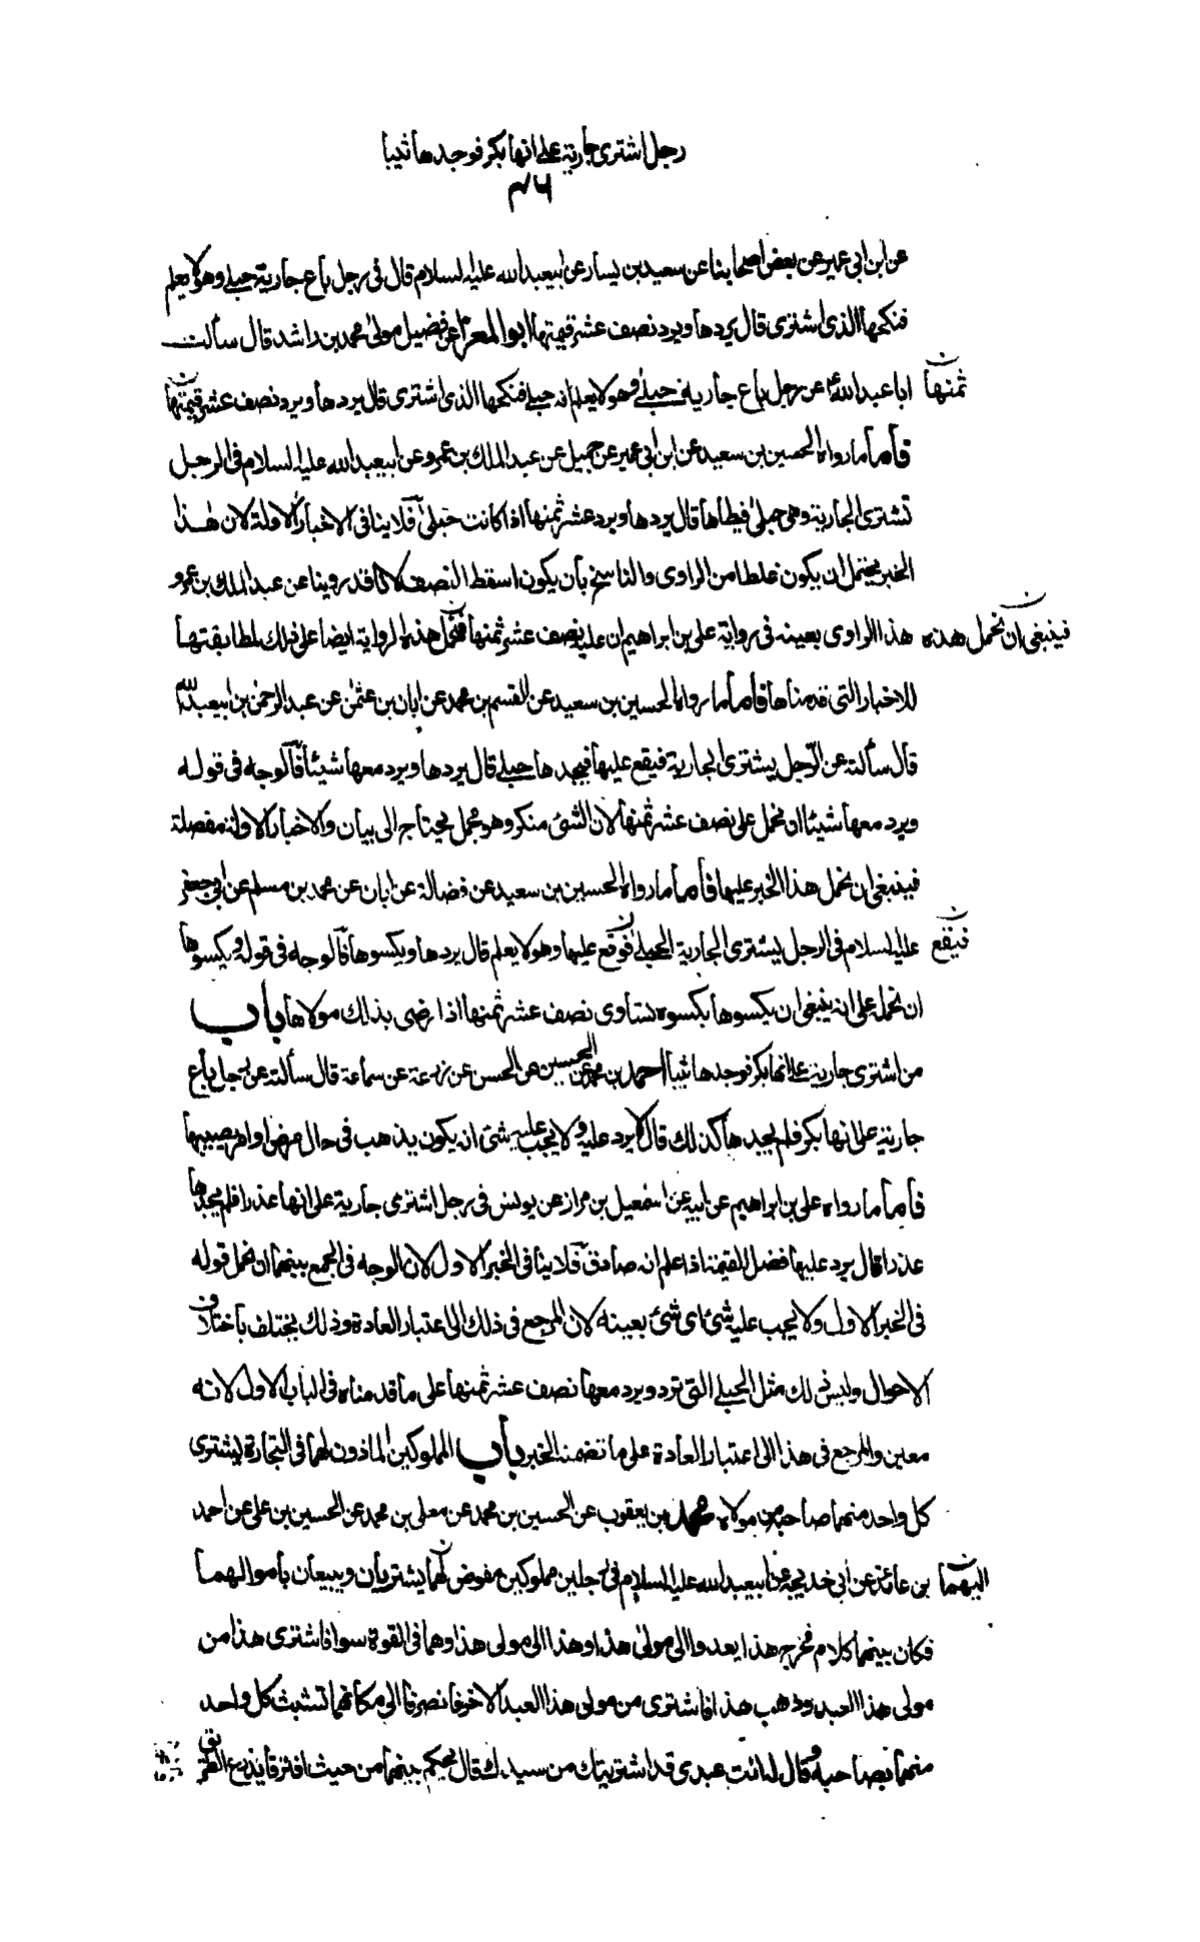 رجل اشترى جارية على انها بكر فوجدها ثيبا
عن ابن ابي عمير عن بعض اصحابنا عن سعيد بن يسار عن ابيعبد الله عليه السلام قال فى رجل باع جارية حبلى وهو لا يعلم
فنكحها الذى اشترى قال يردها ويرد نصف عشر قيمتها ابو المعزا عن فضيل مولى محمد بن راشد قال سألت
ثمنها ابا عبد الله عن رجل باع جارية حبلى وهو لا يعلم انه حبلى فنكحها الذى اشترى قال يردها ويرد نصف عشر قيمتها
فأما ما رواه الحسين بن سعيد عن ابن ابى عمير عن جميل عن عبد الملك بن عمرو عن ابيعبد الله عليه السلام فى الرجل
تشترى الجارية وهى حبلى فيطأها قال يردها ويرد عشر ثمنها اذا كانت حبلى فلا ينافى الاخبار الاولة لان هذا
الخبر يحتمل ان يكون غلطا من الراوى والناسخ بأن يكون اسقط النصف لانا قد روينا عن عبد الملك بن عمرو
فينبغى ان نحمل هذه هذا الراوى بعينه فى رواية على بن ابراهيم ان عليه نصف عشر ثمنها فنحمل هذه الرواية ايضا على ذلك لمطابقتها
للاخبار التى قدمناها فأما ما رواه الحسين بن سعيد عن القسم بن محمد عن ابان بن عثمن عن عبد الرحمن بن ابيعبد الله
قال سألته عن الرجل يشترى الجارية فيقع عليها فيجدها حبلى قال يردها ويرد معها شيئا فالوجه فى قوله
ويرد معها شيئا ان نحمل على نصف عشر ثمنها لان الشئ منكر وهو مجمل يحتاج الى بيان والاخبار الاولة مفصلة
فينبغى ان نحمل هذا الخبر عليها فأما ما رواه الحسين بن سعيد عن فضالة عن ابان عن محمد بن مسلم عن ابى جعفر
فيقع عليه السلام فى الرجل يشترى الجارية الحبلى فوقع عليها وهو لا يعلم قال يردها ويكسوها فالوجه فى قوله ويكسوها
ان نحمل على انه ينبغى ان يكسوها بكسوه تساوى نصف عشر ثمنها اذا رضى بذلك مولاها باب
من اشترى جارية على انها بكر فوجدها ثيبا احمد بن محمد عن الحسين عن الحسن عن زرعة عن سماعة قال سألته عن رجل باع
جارية على انها بكر فلم يجدها كذلك قال لا يرد عليه ولا يجب عليه شئ انه يكون يذهب فى حال مرض او امر يصيبها
فأما ما رواه على بن ابراهيم عن ابيه عن اسمعيل بن مرار عن يونس فى رجل اشترى جارية على انها عذرا فلم يجدها
عذرا قال يرد عليها فضل القيمة اذا علم انه صادق فلا ينافى الخبر الاول لان الوجه فى الجمع بينهما ان نحمل قوله
فى الخبر الاول ولا يجب عليه شئ اى شئ بعينه لان المرجع فى ذلك الى اعتبار العادة وذلك يختلف باختلاف
الاحوال وليس ذلك مثل الحبلى التى ترد ويرد معها نصف عشر ثمنها على ما قدمناه فى الباب الاول لانه
معين والمرجع فى هذا الى اعتبار العادة على ما تضمنه الخبر باب المملوكين الماذون لهما فى التجارة يشترى
كل واحد منهما صاحبه من مولاه محمد بن يعقوب عن الحسين بن محمد عن معلى بن محمد عن الحسين بن على عن احمد
اليهما بن عائذ عن أبى خديجة عن ابيعبد الله عليه السلام فى رجلين مملوكين مفوض لهما يشتريان ويبيعان بأموالهما
فكان بينهما كلام فخرج هذا يعدو الى مولى هذا وهذا الى مولى هذا وهما فى القوة سوا فاشترى هذا من
مولى هذا العبد وذهب هذا فاشترى من مولى هذا العبد الاخر فانصرفا الى مكانهما تشبث كل واحد
منهما بصاحبه وقال له انت عبدى قد اشتريتك من سيدك قال يحكم بينهما من حيث افترقا يذرع الطريق